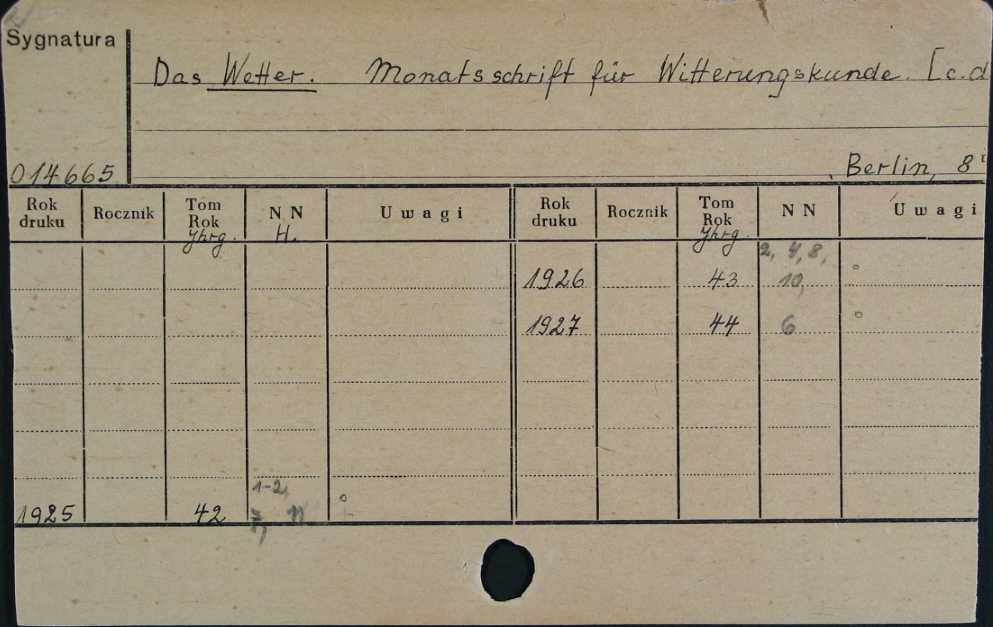 Sygnatura
Das Wetter. Monatsschrift für Witterungskunde. [c.d
014665
Berlin, 8°
Rok druku Rocznik Tom Rok Jhrg. N N H. Uwagi Rok druku Rocznik Tom Rok Jhrg. N N Uwagi
2, 4, 8,
1926 43 10,
1927 44 6
1-2,
1925 42 7, 11